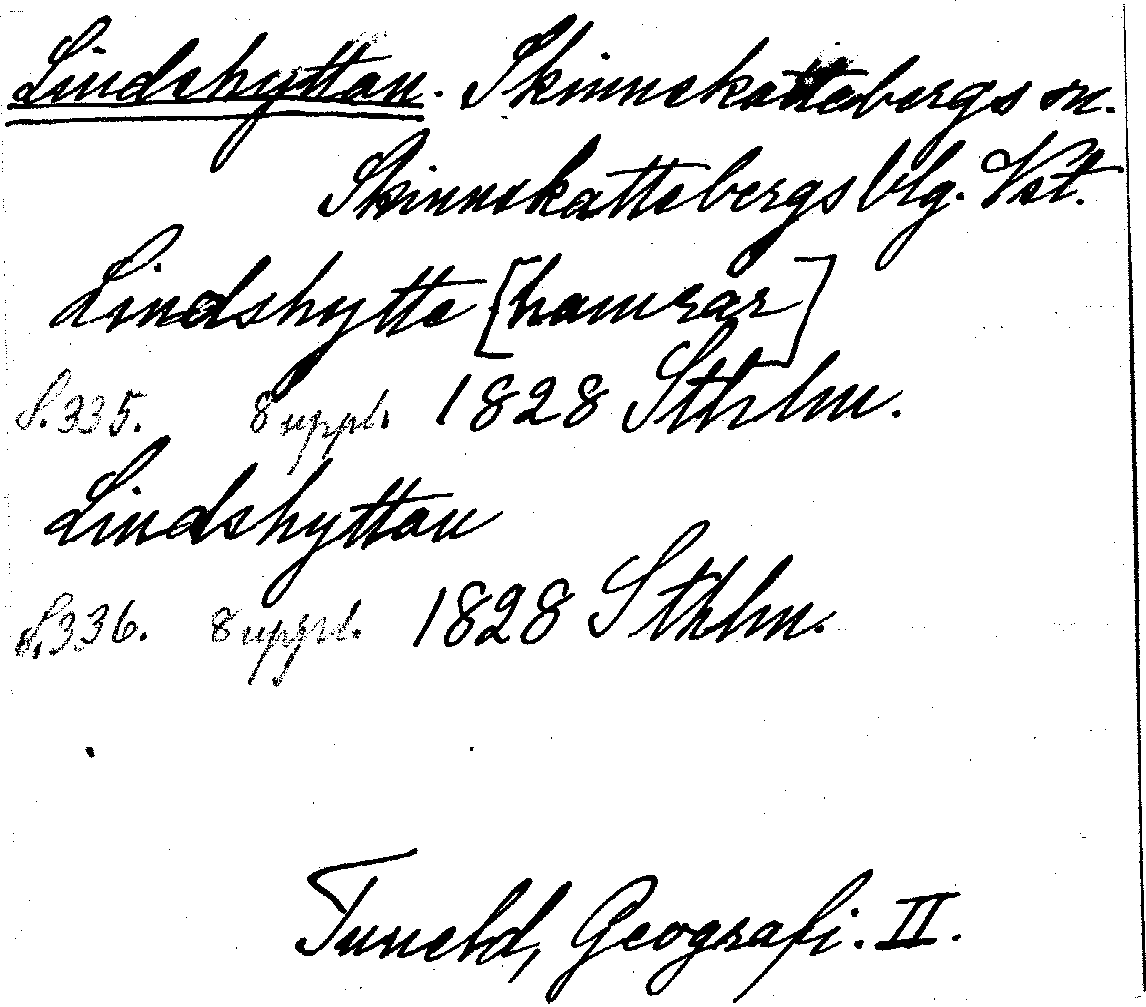 Lindshyttan. Skinnskattebergs sn.
Skinnskattebergs blg. Vst.
Lindshytte [hamrar]
S. 335. 8 uppl. 1828 Sthlm.
Lindshyttan
S. 336. 8 uppl. 1828 Sthlm.
Tuneld, Geografi. II.